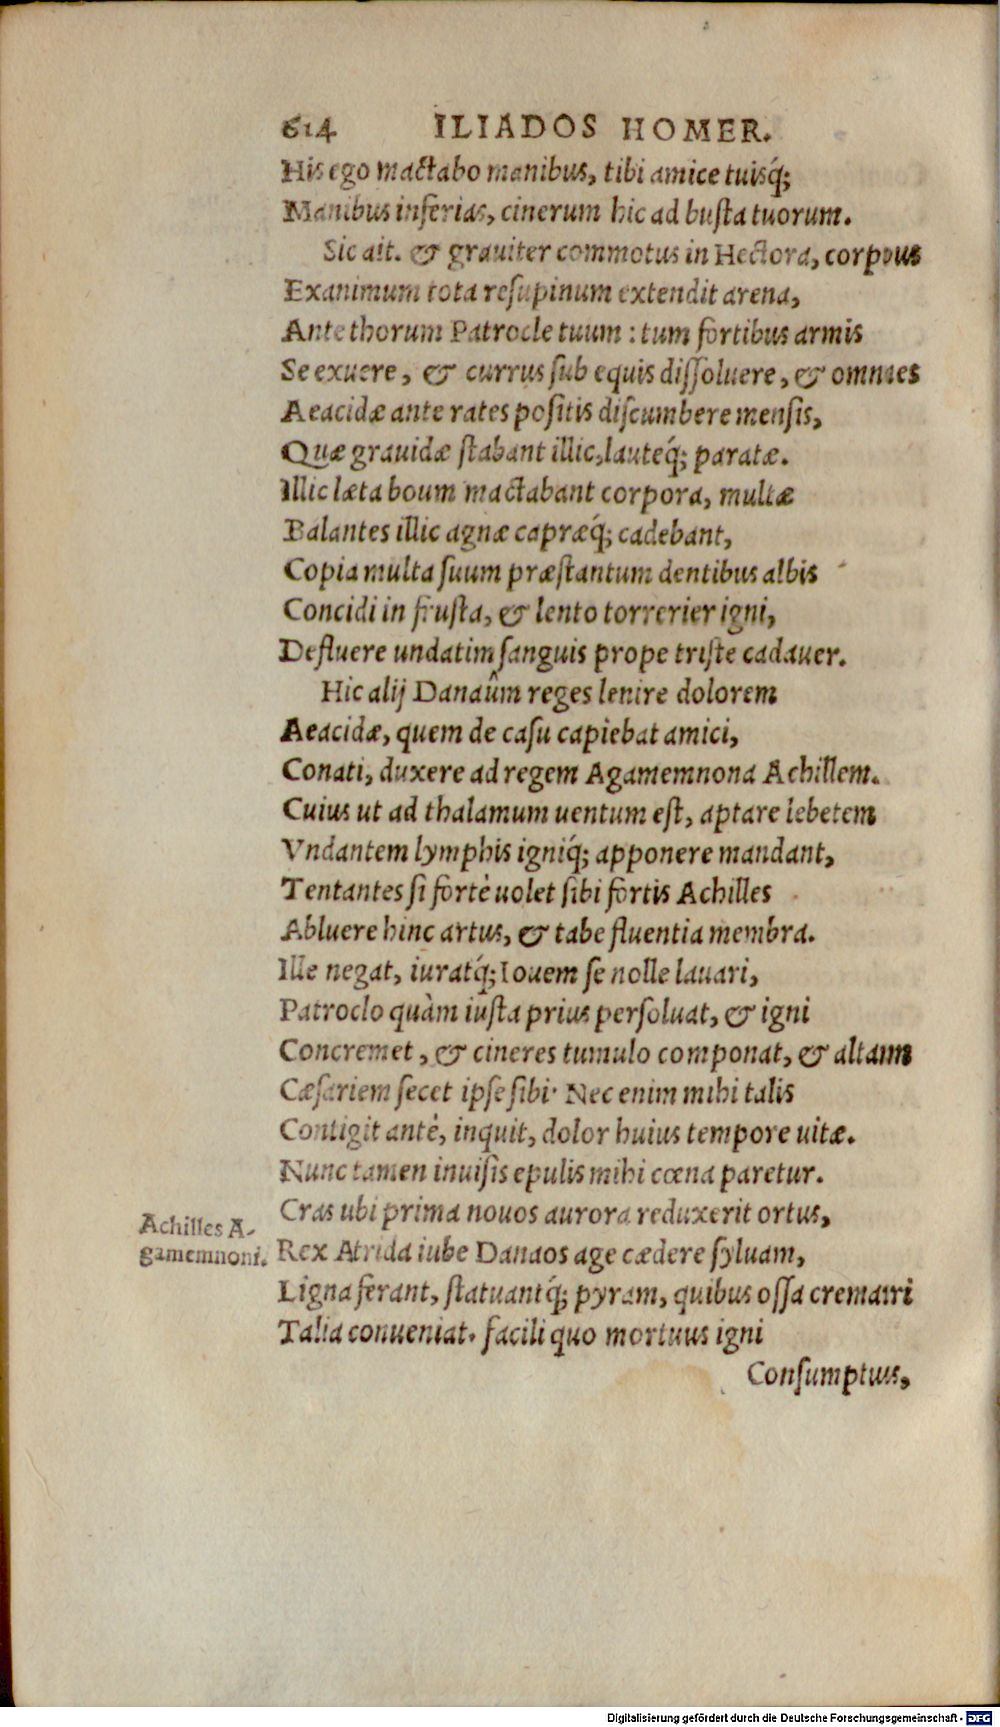 614 ILIADOS HOMER.
His ego mactabo manibus, tibi amice tuisq́;
Manibus inferias, cinerum hic ad busta tuorum.
Sic ait. & grauiter commotus in Hectora, corpus
Exanimum tota resupinum extendit arena,
Ante thorum Patrocle tuum : tum fortibus armis
Se exuere, & currus sub equis dissoluere, & omnes
Aeacidæ ante rates positis discumbere mensis,
Quæ grauidæ stabant illic, lauteq́; paratæ.
Illic læta boum mactabant corpora, multæ
Balantes illic agnæ capræq́; cadebant,
Copia multa suum præstantum dentibus albis
Concidi in frusta, & lento torrerier igni,
Defluere undatim sanguis prope triste cadauer.
Hic alij Danaûm reges lenire dolorem
Aeacidæ, quem de casu capiebat amici,
Conati, duxere ad regem Agamemnona Achillem.
Cuius ut ad thalamum uentum est, aptare lebetem
Vndantem lymphis igniq́; apponere mandant,
Tentantes si fortè uolet sibi fortis Achilles
Abluere hinc artus, & tabe fluentia membra.
Ille negat, iuratq́; Iouem se nolle lauari,
Patroclo quàm iusta prius persoluat, & igni
Concremet, & cineres tumulo componat, & altam
Cæsariem secet ipse sibi. Nec enim mihi talis
Contigit antè, inquit, dolor huius tempore uitæ.
Nunc tamen inuisis epulis mihi cœna paretur.
Cras ubi prima nouos aurora reduxerit ortus,
Achilles A-
gamemnoni.
Rex Atrida iube Danaos age cædere syluam,
Ligna ferant, statuantq́; pyram, quibus ossa cremari
Talia conueniat. facili quo mortuus igni
Consumptus,
Digitalisierung gefördert durch die Deutsche Forschungsgemeinschaft - DFG